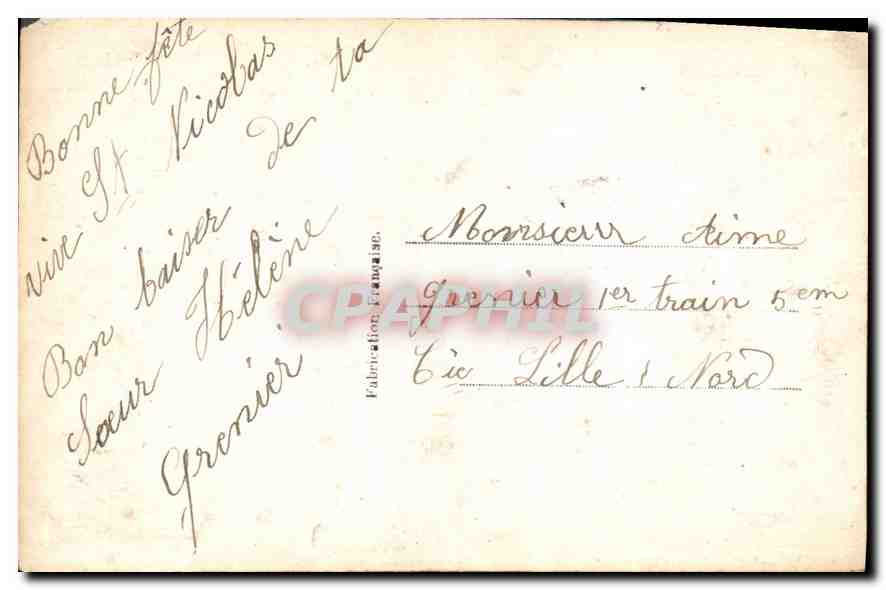 Bonne fête
vive St Nicolas
Bon baiser de ta
Sœur Hélène
Grenier
Fabrication Française.
CPAPHIL
Monsieur Aime
grenier 1er train 5em
Cie Lille Nord